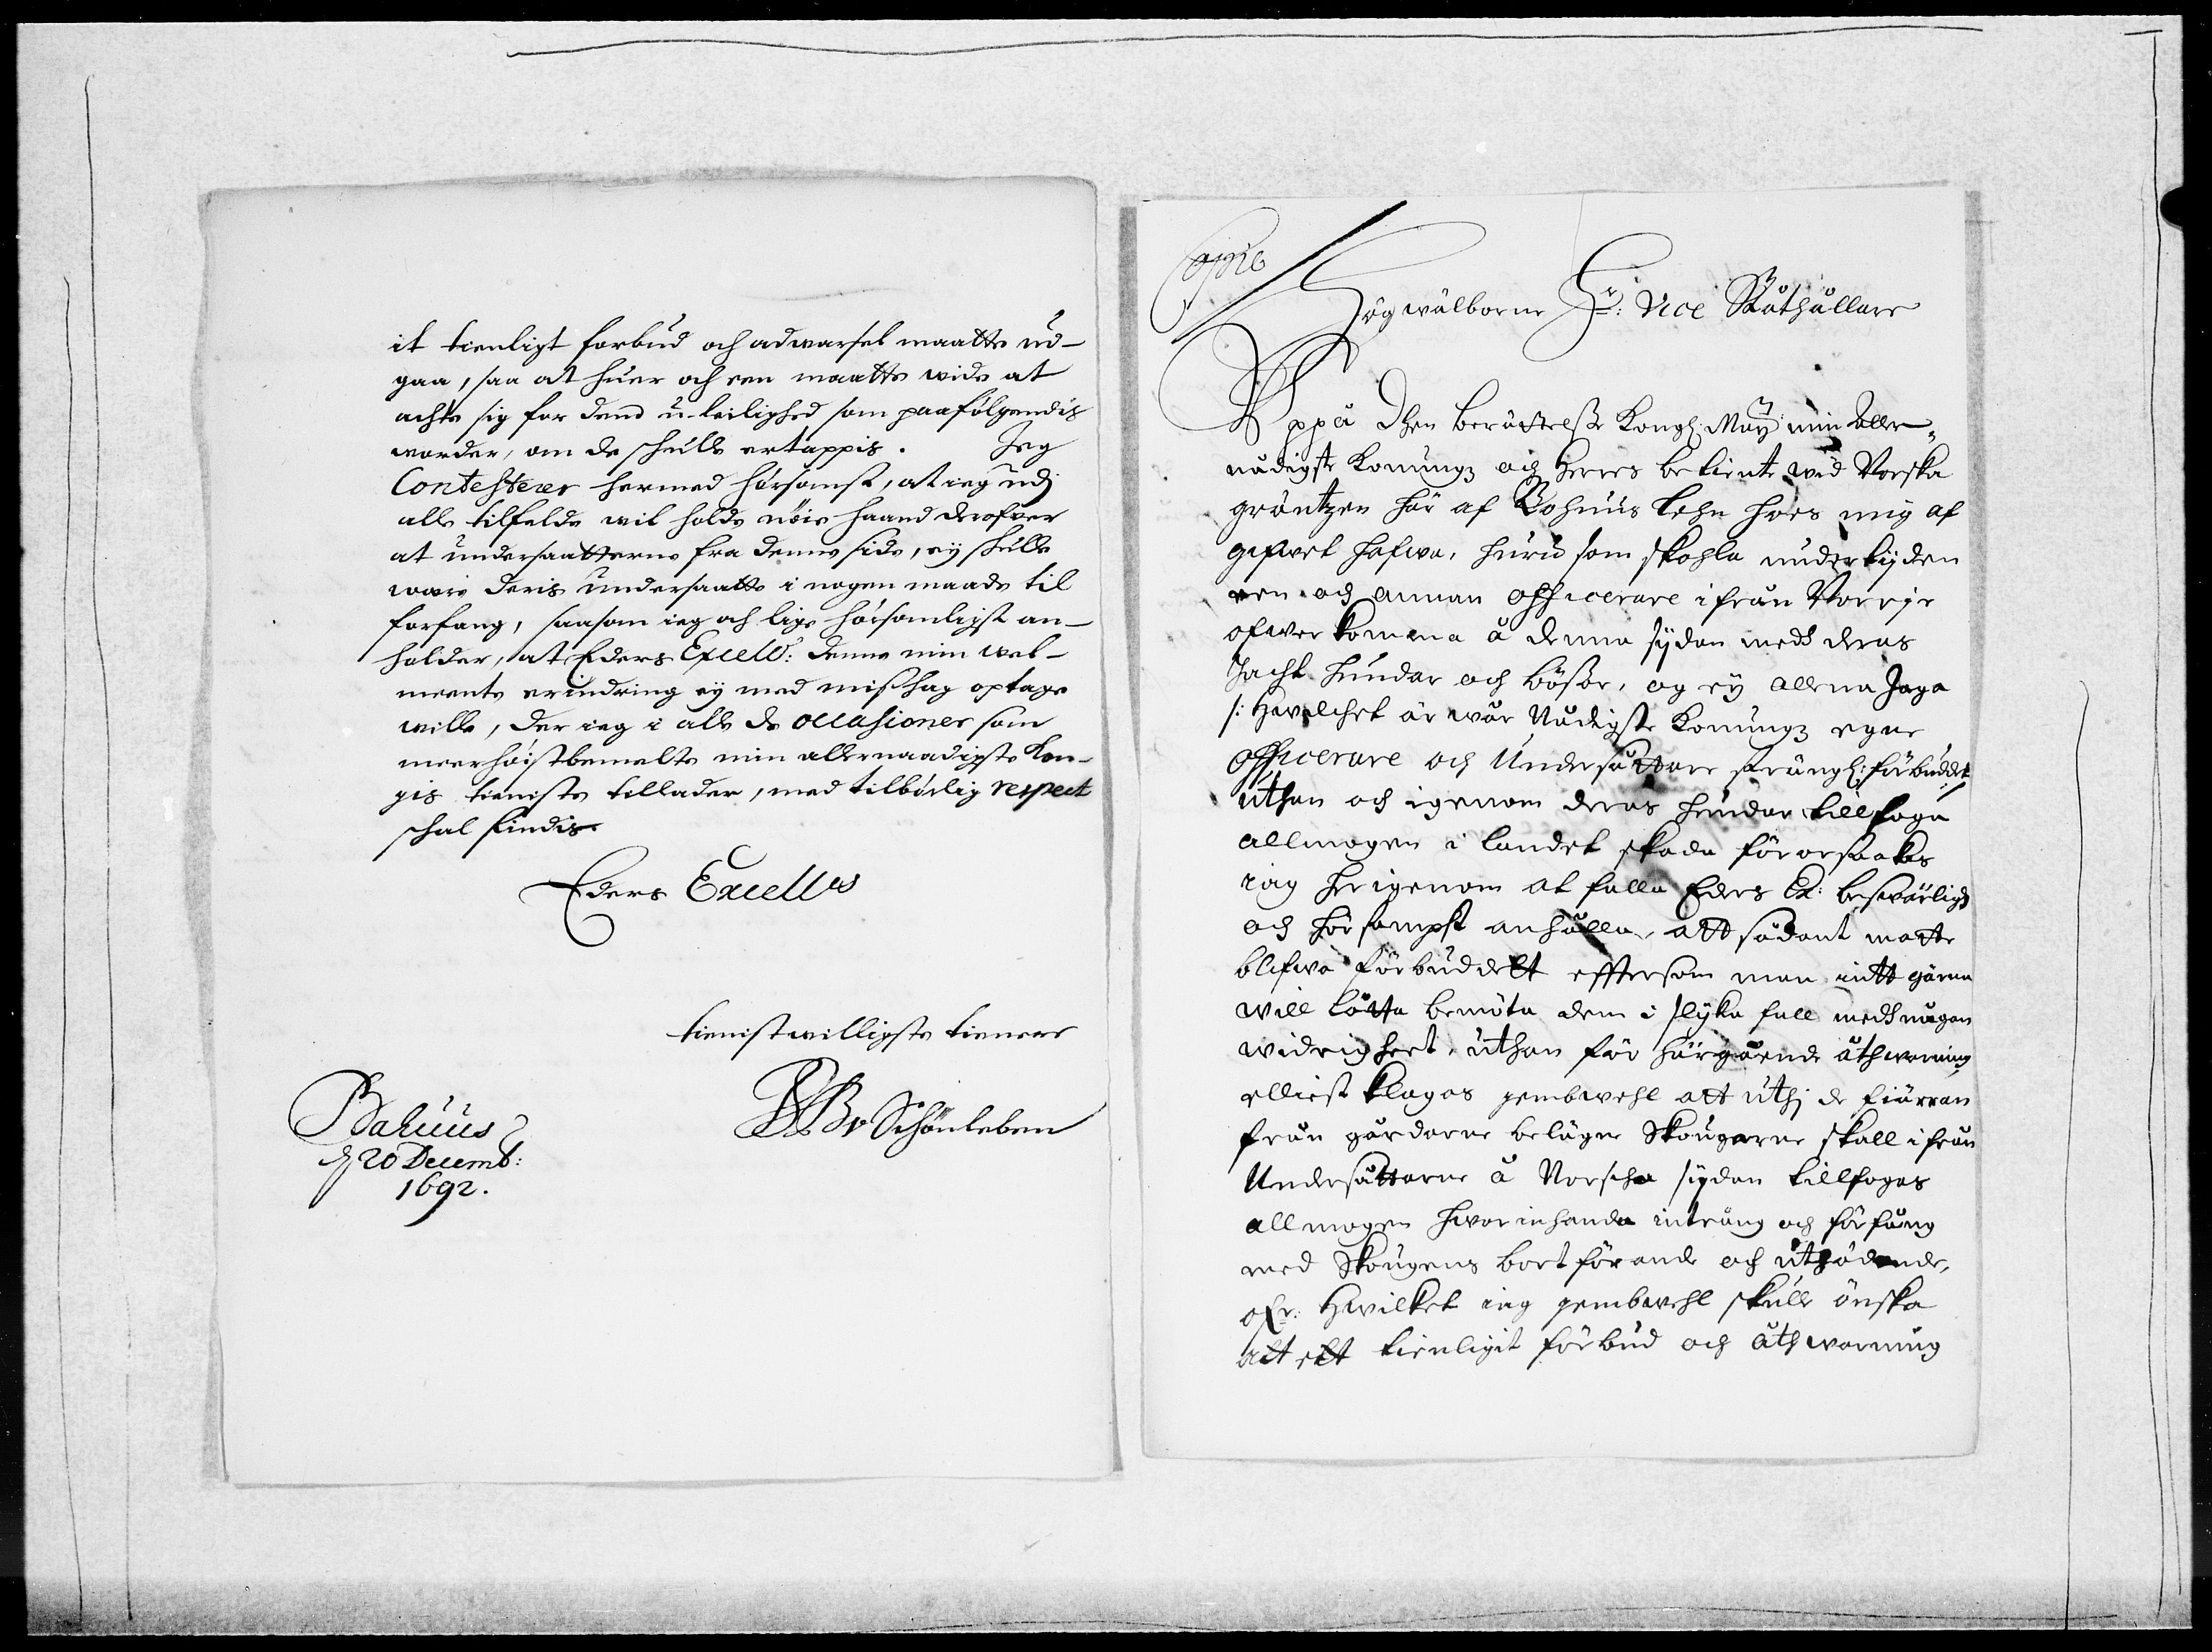 it tienligt forbud och adwarsel maatte ud-
gaa, saa at huer och een maatte wide at
achte sig for dend u-leilighed som paafölgendis
worder, om de schulle ertappis. Jeg
Contesterer hermed hörsomst, at ieg udj
alle tilfelde wil holde nöie haand derofver
at undersaatterne fra denne side, ey skulle
were deris undersaatte i nogen maade til
forfang, saasom ieg och lige hörsomligst an-
holder, at Eders Excell: denne min wel-
meente erindring ey med misshag optage
wille, der ieg i alle de occasioner som
meerhöistbemelte min allernaadigste Kon-
gis tieniste tillader, med tilbörlig respect
schal findis
Eders Excell
tienistwilligste tienere
v Schönleben
Bahuus
d 20 Decemb:
1692.
Copie
Högwälborne Hr: Vice Stathållare
Uppå Dhen berättelsse Kongl: May min Aller-
nådigste Konungz och Herres betiente wid Norska
gräntzen här af Bohuus Lehn hoos mig af
gifwet hafwa, huru som skohla undertijden
een och annan officerare ifrån Norrje
öfwerkomma å denna sydan medh deras
Jacht hundar och bössor, og ey allena Jaga
/: Hwilchet är wår Nådigste Konungz egne
Officerare och Undersåttare strängl: förbuddet :/
uthan och igenom deras hundar tillfoga
allmogen i landet skada förorsaakas
iag herigenom at falla Eders Ex: beswärligh
och hörsampst anhålla, att sådant matte
blifwa förbuddett efftersom man intt gärna
will låtta bemöta dem i slyka fall medh någon
widrigheet, uthan för härgående åthwarning
elliest klagas jembwehl att uthj de fiärran
från gårdarne belägne Skougarne skall ifrån
Undersåttarne å Norscha sydan tillfogas
allmogen hwariehanda intrång och förfång
med Skougens bortförande och uthödande,
öfr: Hwilket iag jembwehl skulle önska
att ett tienligit förbud och åthwarning